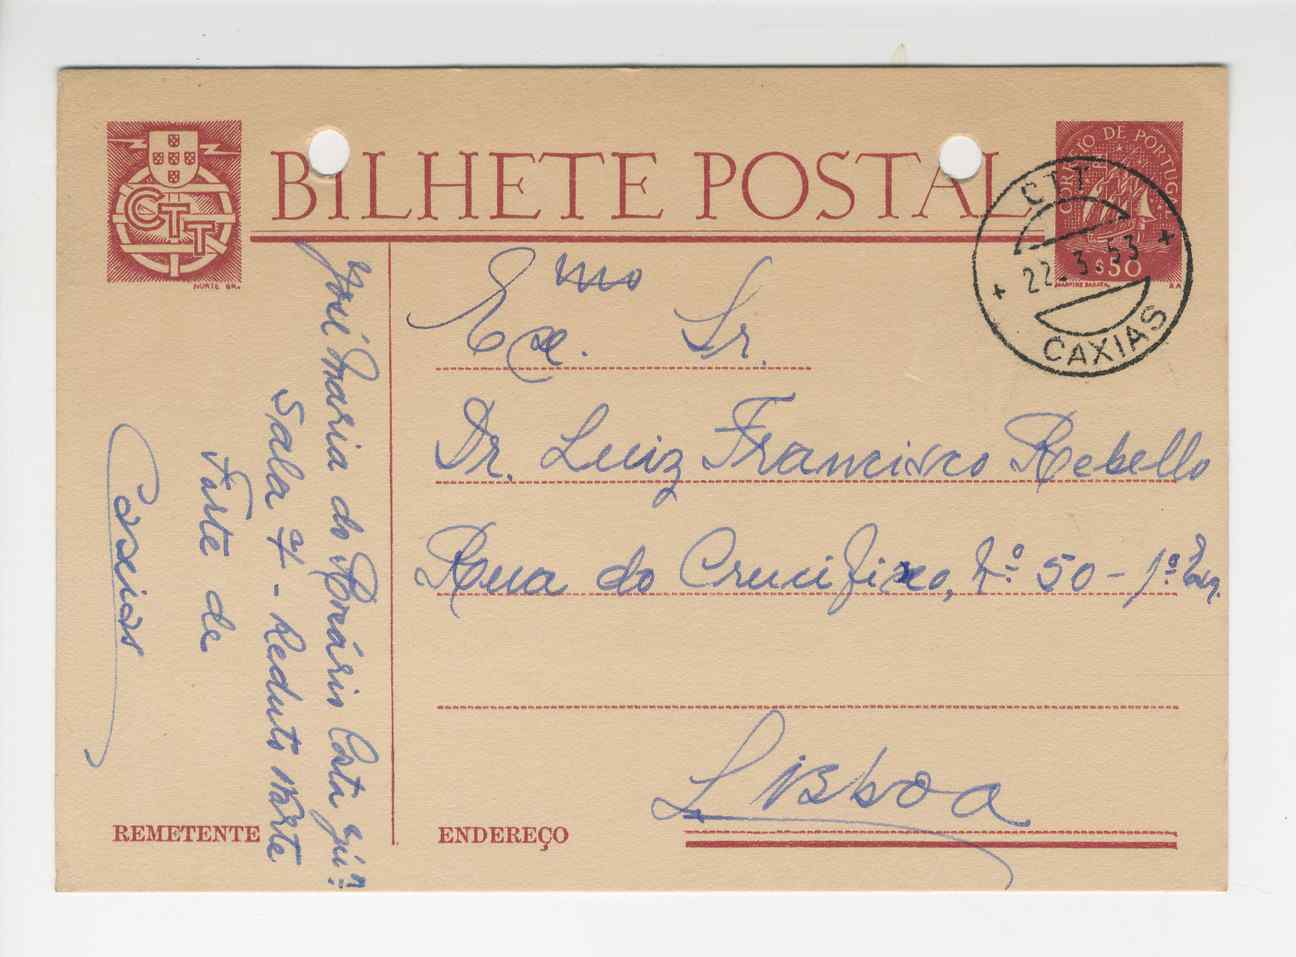 BILHETE POSTAL
CTT
NORTE GR.
CORREIO DE PORTUGAL
$50
MARTINS BARATA
CTT
22.3.53
CAXIAS
Exmo. Sr.
Dr. Luiz Francisco Rebello
Rua do Crucifixo, Nº 50 - 1º Esq.
Lisboa
ENDEREÇO
José Maria do Rosário Costa Jún.
Sala 4 - Reduto Norte
Forte de
Caxias
REMETENTE